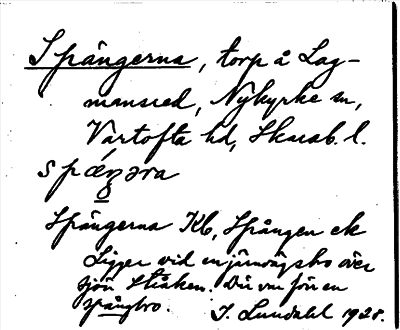 Spångerna, torp å Lag-
mansred, Nykyrke sn,
Vartofta hd, Skarab. l.
spǽŋəra
Spångerna Kb, Spången ek
Ligger vid en järnvägsbro över
sjön Stråken. Där var förr en
spångbro. J. Lundahl 1928.